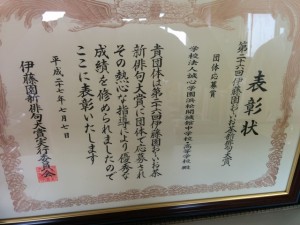 表彰状
第二十六回伊藤園おーいお茶新俳句大賞
団体応募賞
学校法人誠心学園浜松開誠館中学校・高等学校 殿
貴団体は第二十六回伊藤園おーいお茶
新俳句大賞に団体で応募され
その熱心な指導により優秀な
成績を修められましたので
ここに表彰いたします
平成二十七年七月七日
伊藤園新俳句大賞実行委員会